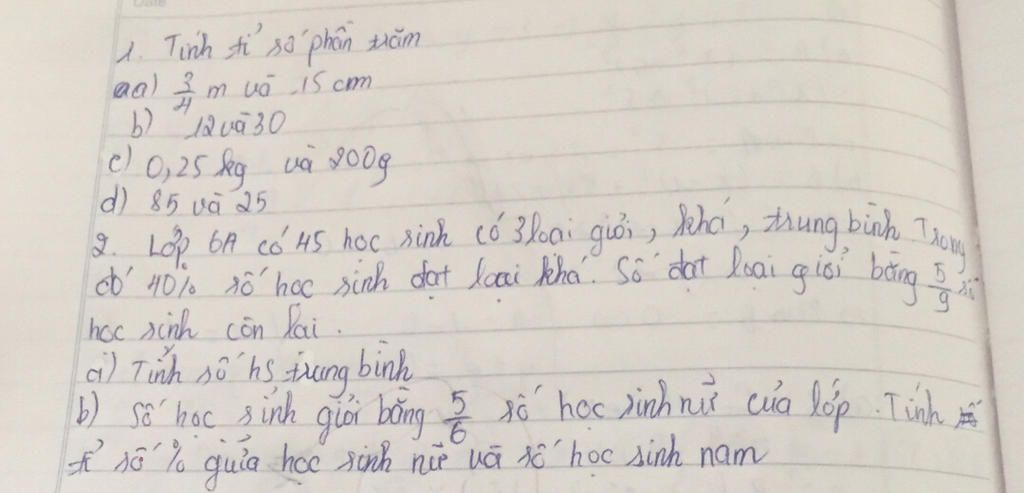 1. Tính tỉ số phần trăm
a) 3/4 m và 15 cm
b) 12 và 30
c) 0,25 kg và 200g
d) 85 và 25
2. Lớp 6A có 45 học sinh có 3 loại giỏi, khá, trung bình. Trong
đó 40% số học sinh đạt loại khá. Số đạt loại giỏi bằng 5/9 số
học sinh còn lại.
a) Tính số hs trung bình
b) Số học sinh giỏi bằng 5/6 số học sinh nữ của lớp. Tính
tỉ số % giữa học sinh nữ và số học sinh nam